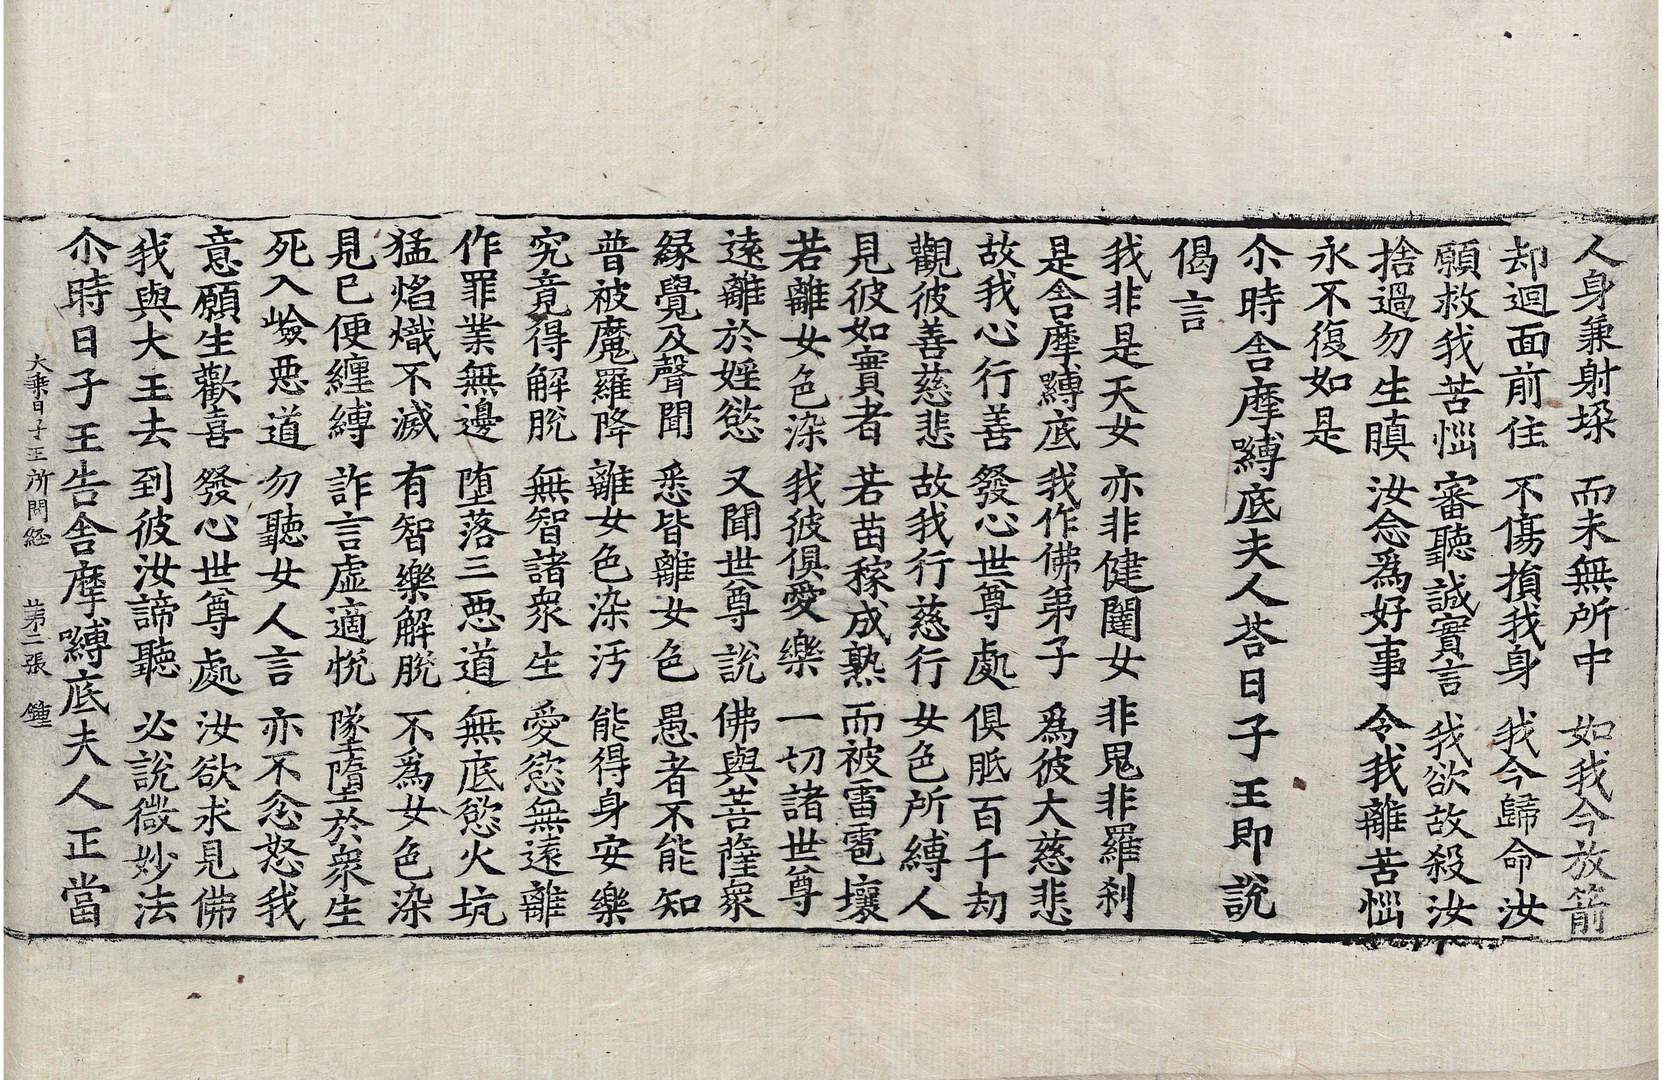 人身兼射垛　而未無所中　如我今放箭
却迴面前住　不傷損我身　我今歸命汝
願救我苦惱　審聽誠實言　我欲故殺汝
捨過勿生瞋　汝念爲好事　令我離苦惱
永不復如是
尒時舍摩嚩底夫人荅日子王即說
偈言
我非是天女　亦非健闥女　非鬼非羅刹
是舍摩嚩底　我作佛弟子　爲彼大慈悲
故我心行善　發心世尊處　俱胝百千劫
觀彼善慈悲　故我行慈行　女色所縛人
見彼如實者　若苗稼成熟　而被雷雹壞
若離女色染　我彼俱愛樂　一切諸世尊
遠離於婬慾　又聞世尊說　佛與菩薩衆
緣覺及聲聞　悉皆離女色　愚者不能知
普被魔羅降　離女色染汚　能得身安樂
究竟得解脫　無智諸衆生　愛慾無遠離
作罪業無邊　墮落三惡道　無底慾火坑
猛焰熾不滅　有智樂解脫　不爲女色染
見已便纏縛　詐言虛適悅　墜墮於衆生
死入嶮惡道　勿聽女人言　亦不忿怒我
意願生歡喜　發心世尊處　汝欲求見佛
我與大王去　到彼汝諦聽　必說微妙法
尒時日子王告舍摩嚩底夫人正當
大乘日子王所問經　第二張　鍾